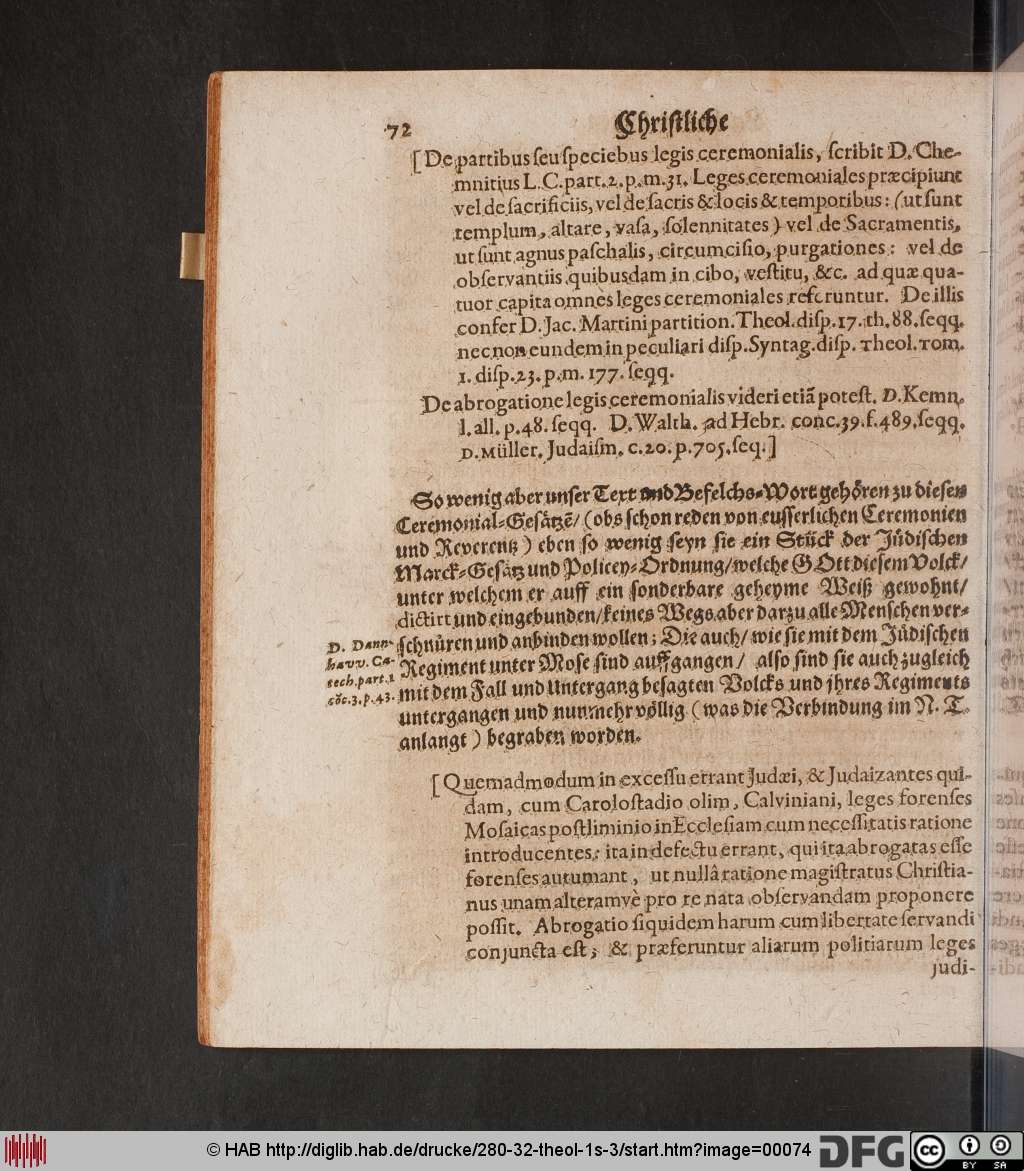 72 Christliche
[De partibus seu speciebus legis ceremonialis, scribit D. Che-
mnitius L.C. part. 2. p. m. 31. Leges ceremoniales præcipiunt
vel de sacrificiis, vel de sacris & locis & temporibus: (ut sunt
templum, altare, vasa, solennitates) vel de Sacramentis,
ut sunt agnus paschalis, circumcisio, purgationes: vel de
observantiis quibusdam in cibo, vestitu, &c. ad quæ qua-
tuor capita omnes leges ceremoniales referuntur. De illis
confer D. Jac. Martini partition. Theol. disp. 17. th. 88. seqq.
nec non eundem in peculiari disp. Syntag. disp. Theol. Tom.
1. disp. 23. p. m. 177. seqq.
De abrogatione legis ceremonialis videri etiã potest. D. Kemn.
l. all. p. 48. seqq. D. Walth. ad Hebr. conc. 39. f. 489. seqq.
D. Müller. Judaism. c. 20. p. 705. seq.]
So wenig aber unser Text und Befelchs-Wort gehören zu diesen
Ceremonial-Gesätzẽ/ (obs schon reden von eusserlichen Ceremonien
und Reverentz) eben so wenig seyn sie ein Stück der Jüdischen
Marck-Gesätz und Policey-Ordnung/ welche GOtt diesem Volck/
unter welchem er auff ein sonderbare geheyme Weiß gewohnt/
dictirt und eingebunden/ keines Wegs aber darzu alle Menschen ver-
schnüren und anbinden wollen; Die auch/ wie sie mit dem Jüdischen
Regiment unter Mose sind auffgangen/ also sind sie auch zugleich
mit dem Fall und Untergang besagten Volcks und jhres Regiments
untergangen und nunmehr völlig (was die Verbindung im N. T.
anlangt) begraben worden.
D. Dann-
havv. Ca-
tech. part. 1
cõc. 3. p. 43.
[Quemadmodum in excessu errant Judæi, & Judaizantes qui-
dam, cum Carolostadio olim, Calviniani, leges forenses
Mosaicas postliminio in Ecclesiam cum necessitatis ratione
introducentes: ita in defectu errant, qui ita abrogatas esse
forenses autumant, ut nullâ ratione magistratus Christia-
nus unam alteramvè pro re nata observandam proponere
possit. Abrogatio siquidem harum cum libertate servandi
conjuncta est; & præferuntur aliarum politiarum leges
judi-
© HAB http://diglib.hab.de/drucke/280-32-theol-1s-3/start.htm?image=00074
DFG
cc BY SA